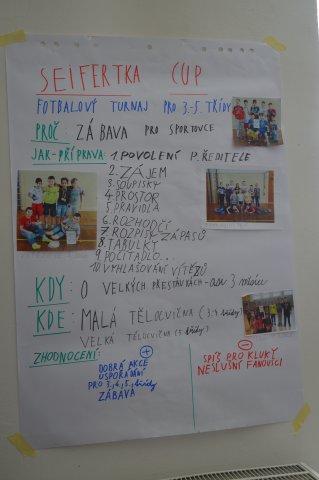 SEIFERTKA CUP
FOTBALOVÝ TURNAJ PRO 3.-5. TŘÍDY
PROČ: ZÁBAVA PRO SPORTOVCE
JAK-PŘÍPRAVA: 1. POVOLENÍ P. ŘEDITELE
2. ZÁJEM
3. SOUPISKY
4. PROSTOR
5. PRAVIDLA
6. ROZHODČÍ
7. ROZPIS ZÁPASŮ
8. TABULKY
9. POČÍTADLO...
10. VYHLAŠOVÁNÍ VÍTĚZŮ
KDY: O VELKÝCH PŘESTÁVKÁCH - asi 3 měsíce
KDE: MALÁ TĚLOCVIČNA (3.,4. třídy)
VELKÁ TĚLOCVIČNA (5. třídy)
ZHODNOCENÍ:
+
DOBRÁ AKCE
USPOŘÁDÁNÍ
PRO 3., 4., 5. třídy
ZÁBAVA
-
SPÍŠ PRO KLUKY
NESLUŠNÍ FANOUŠCI